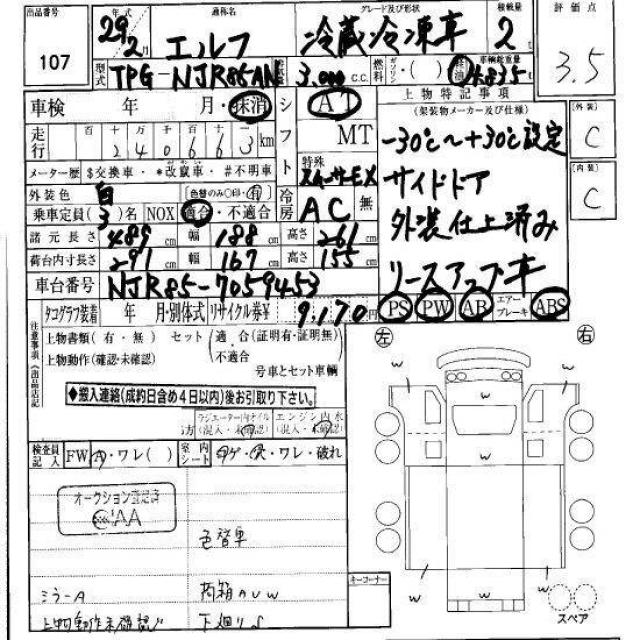 出品番号 年式 通称名 グレード及び形状 積載量 評価点
107 29年2月 エルフ 冷蔵冷凍車 2 3.5
型式 TPG-NJR85AN 3,000 c.c. 燃料 ガソリン・( )・軽油 車輌総重量 4835
車検 年 月・抹消 シフト AT 上物特記事項
(架装物メーカー及び仕様) 外装 C
走行 百 十 万 千 百 十
240663 km MT -30℃~+30℃設定
メーター歴 $交換車・*改竄車・#不明車 特殊 スムーサーEX サイドドア 内装 C
外装色 白 (色替のみ〇印・有) 冷房 AC 無
乗車定員(3)名 NOX 適合・不適合 外装仕上済み
諸元長さ 489 cm 幅 188 cm 高さ 261 cm
荷台内寸長さ 291 cm 幅 167 cm 高さ 155 cm リースアップ車
車台番号 NJR85-7059453
PS PW AB エアーブレーキ ABS
タコグラフ装着 年 月・別体式 リサイクル券¥ 9,170 円
注意事項《出品店記
上物書類(有・無) セット(適合(証明有・証明無)
・不適合
上物動作(確認・未確認) 号車とセット車輌
左 右
◆搬入連絡(成約日含め4日以内)後お引取り下さい。
ラジエーター内オイル エンジン内水
(混入・未確認) (混入・未確認)
検査員記入 FW A・ワレ( ) 室内シート コゲ・穴・ワレ・破れ
w
w
w
w
w
w
w
オークション査定済
AA
色替車
キーコーナー
ミラーA 荷箱AUW
上物動作未確認 下廻りS
スペア